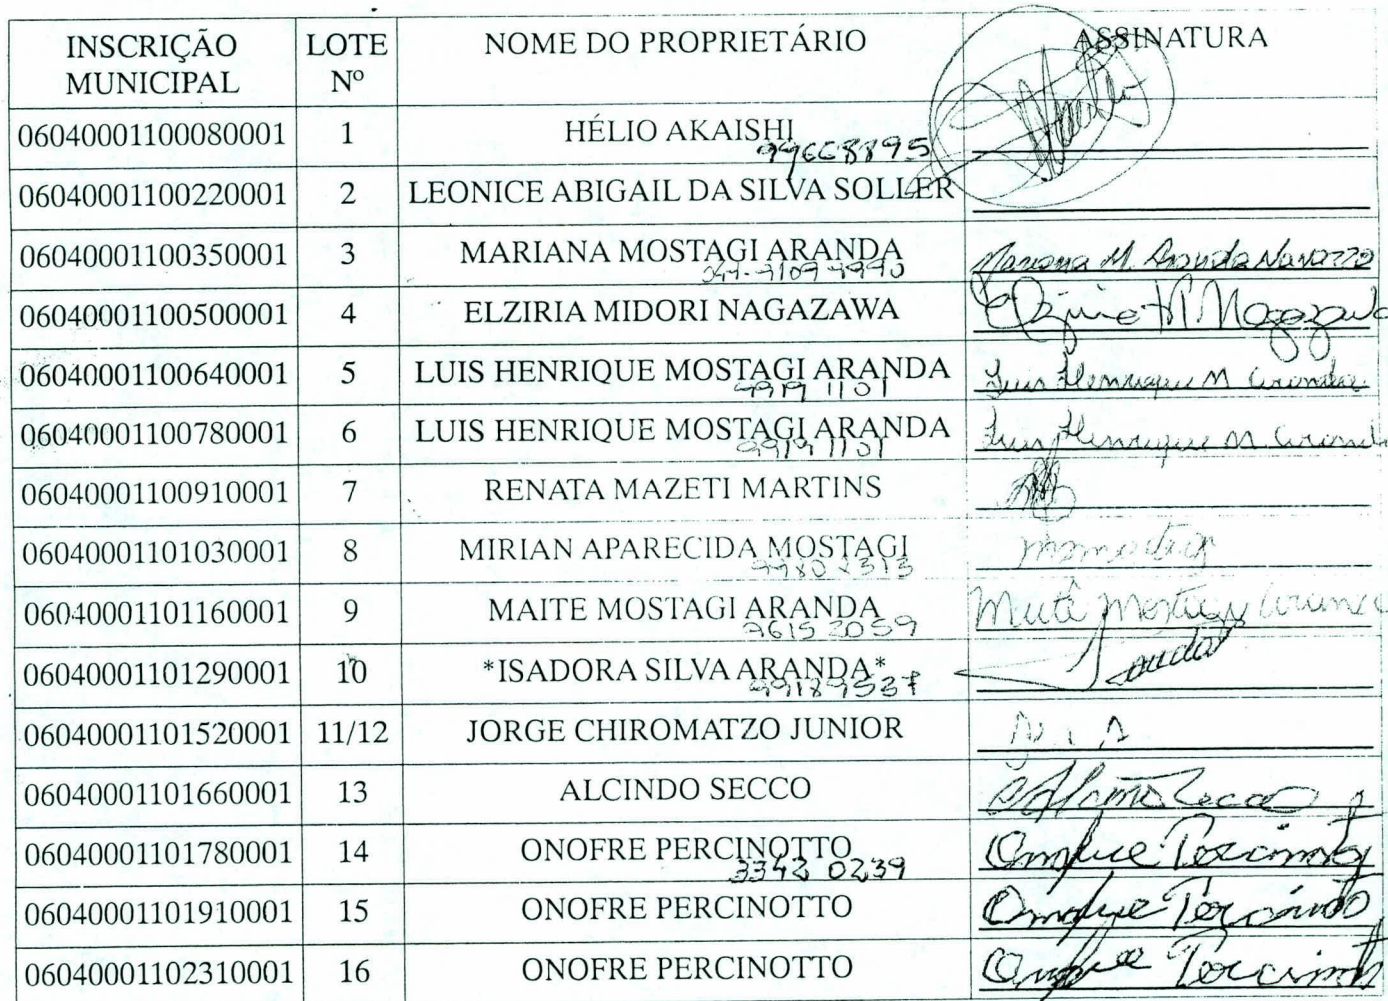 INSCRIÇÃO MUNICIPAL LOTE Nº NOME DO PROPRIETÁRIO ASSINATURA
06040001100080001 1 HÉLIO AKAISHI
99668895
06040001100220001 2 LEONICE ABIGAIL DA SILVA SOLLER
06040001100350001 3 MARIANA MOSTAGI ARANDA Mariana M. Aranda Navarro
06040001100500001 4 ELZIRIA MIDORI NAGAZAWA Elziria M Nagazawa
06040001100640001 5 LUIS HENRIQUE MOSTAGI ARANDA Luis Henrique M Aranda
9919 1101
06040001100780001 6 LUIS HENRIQUE MOSTAGI ARANDA Luis Henrique M Aranda
9919 1101
06040001100910001 7 RENATA MAZETI MARTINS
06040001101030001 8 MIRIAN APARECIDA MOSTAGI
9980 2313
06040001101160001 9 MAITE MOSTAGI ARANDA Maitê Mostagi Aranda
9615 2059
06040001101290001 10 *ISADORA SILVA ARANDA*
99189537
06040001101520001 11/12 JORGE CHIROMATZO JUNIOR
06040001101660001 13 ALCINDO SECCO
06040001101780001 14 ONOFRE PERCINOTTO Onofre Percinotto
3342 0239
06040001101910001 15 ONOFRE PERCINOTTO Onofre Percinotto
06040001102310001 16 ONOFRE PERCINOTTO Onofre Percinotto